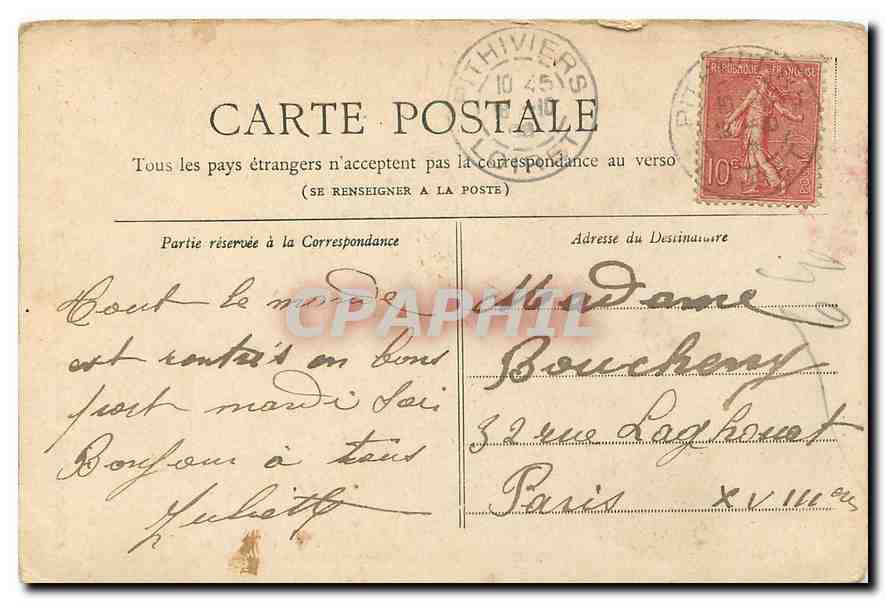 PITHIVIERS
10 45
LOIRET
REPUBLIQUE FRANÇAISE
10c
POSTES
CARTE POSTALE
Tous les pays étrangers n'acceptent pas la correspondance au verso
(SE RENSEIGNER A LA POSTE)
Partie réservée à la Correspondance
Adresse du Destinataire
Tout le monde
est rentrés en bons
port mardi soir
Bonjour à tous
Juliette
Madame
Boucheny
32 rue Laghouat
Paris XVIIIe
CPAPHIL